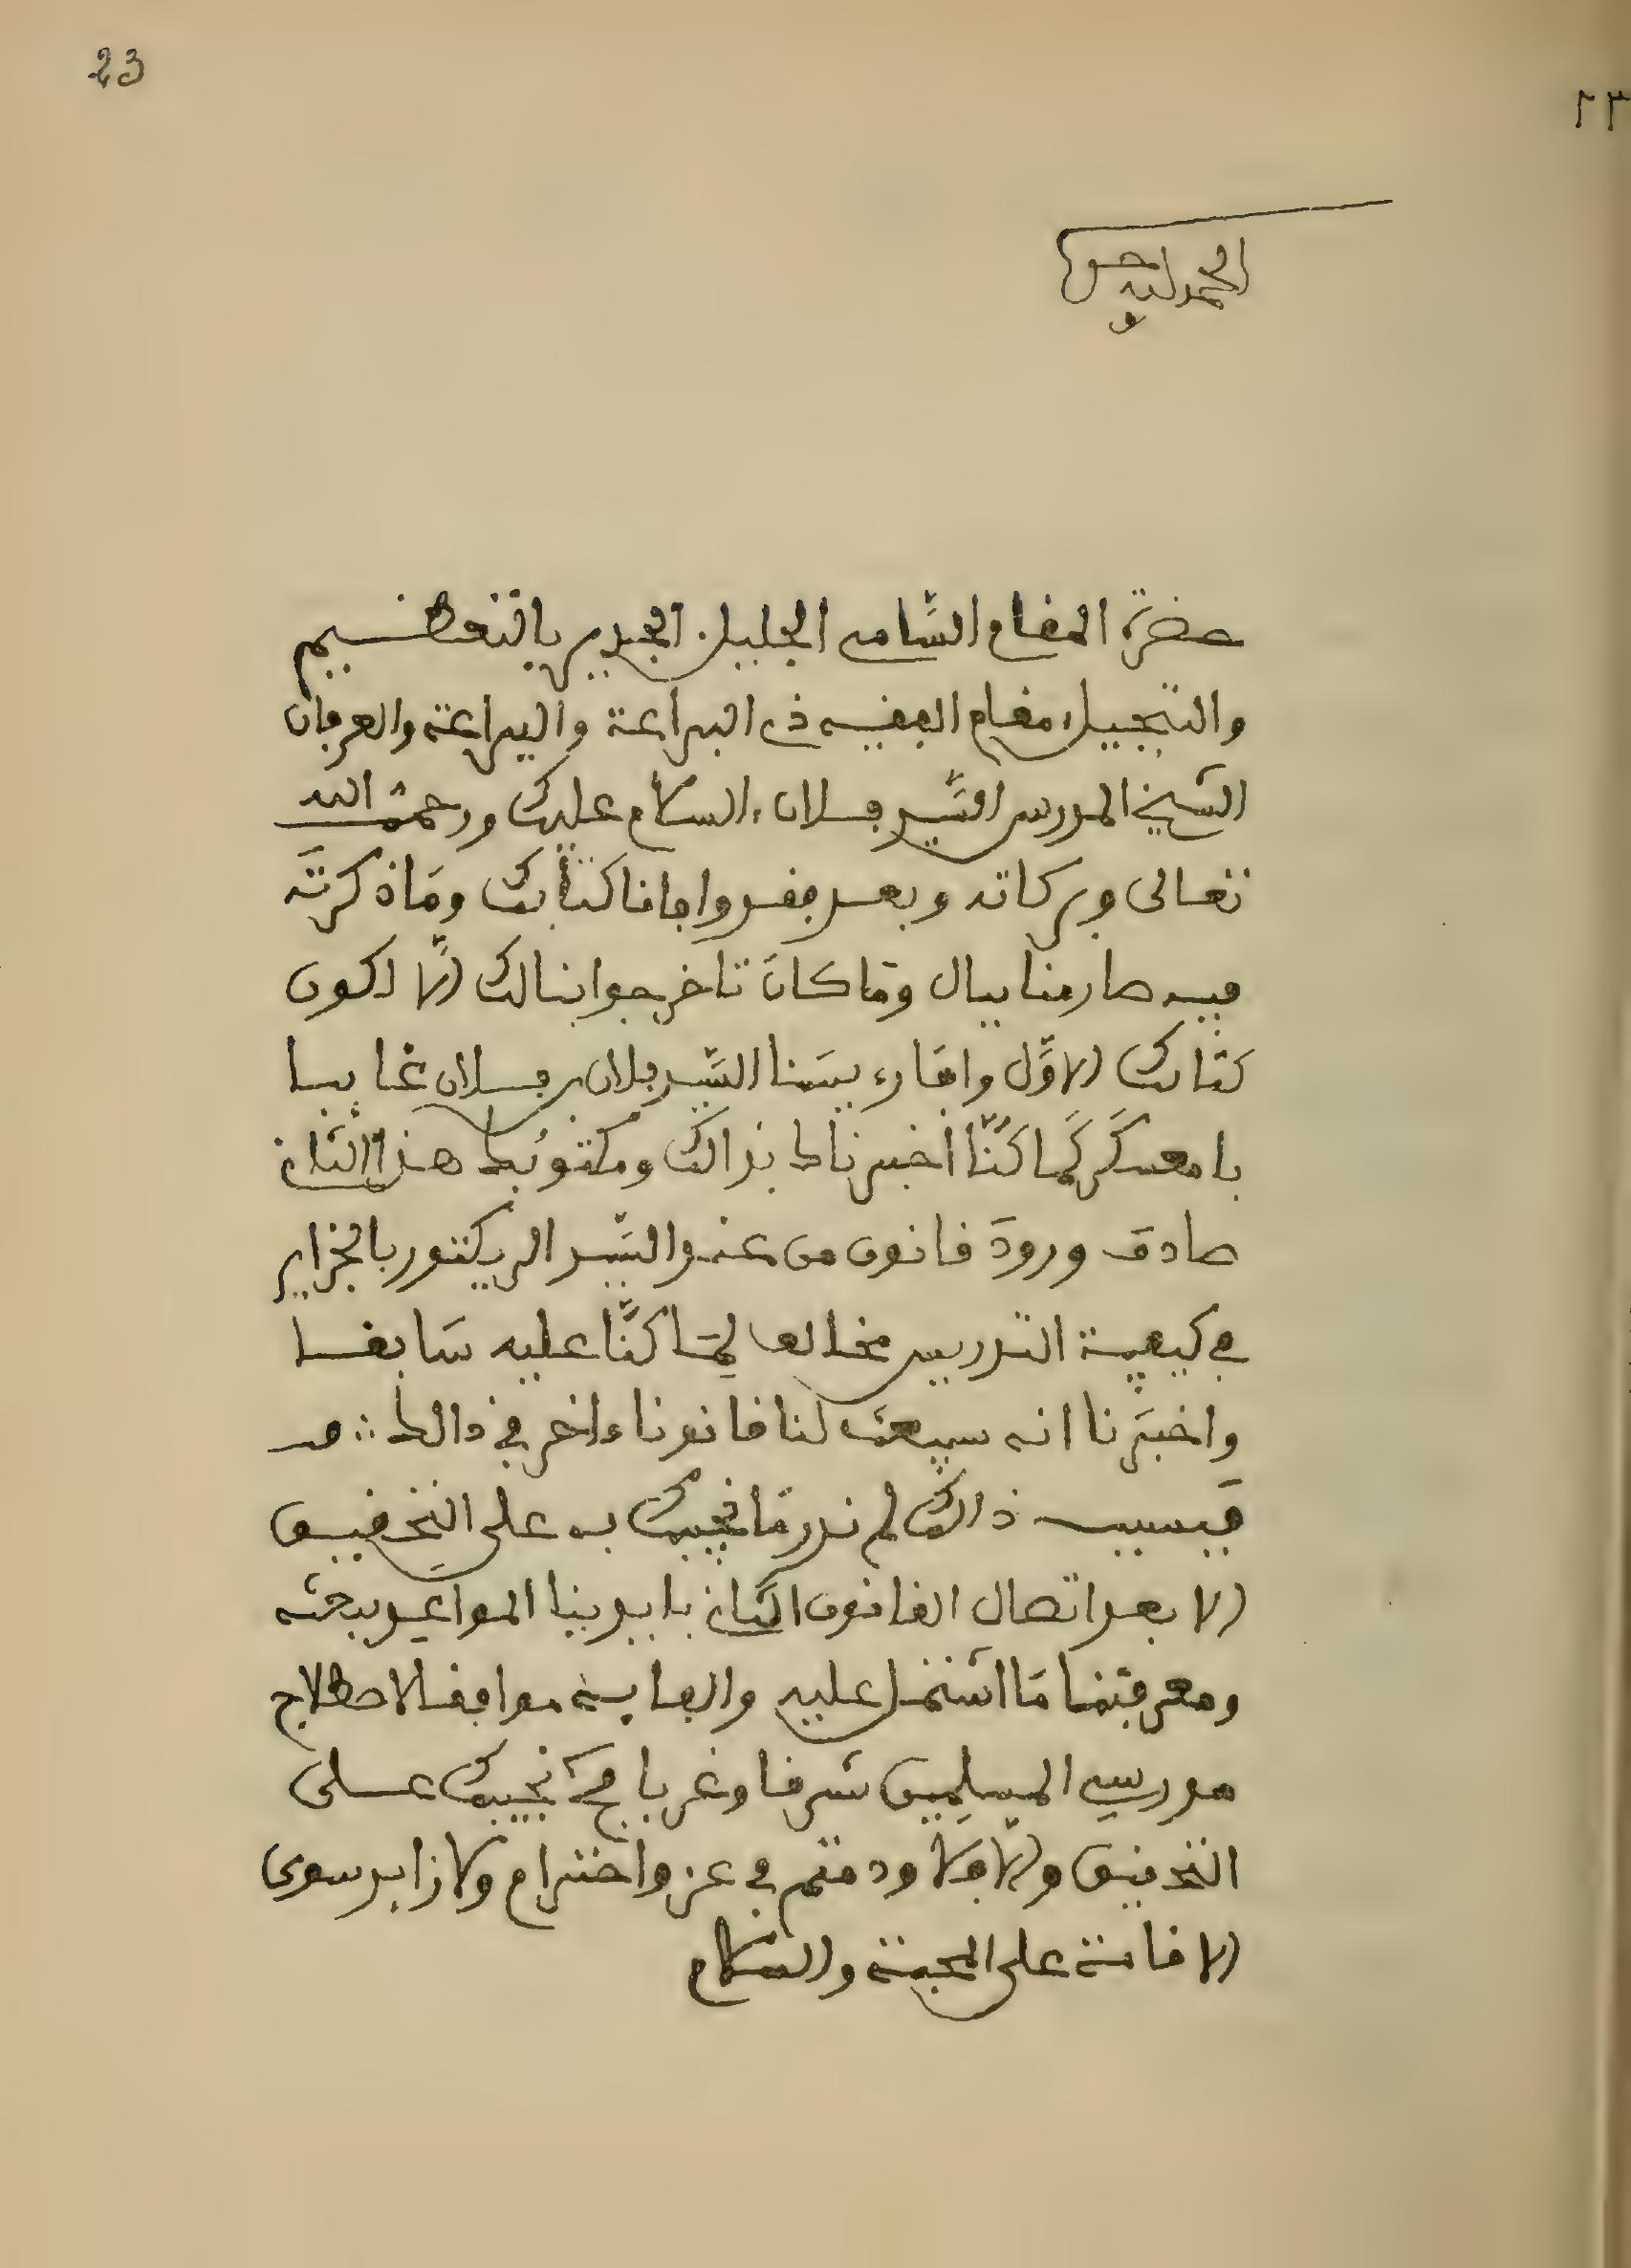 23
٢٣
الحمد لله وحده
حضرة المقام السَّامي الجليل الجدير بالتعظيم
والتبجيل مقام الفقيه ذي البراعة واليراعة والعرفان
الشيخ المدرس السَّيد فلان السلام عليك ورحمة الله
تعالى وبركاته وبعد فقد وافانا كتابك ومَا ذكرتَه
فيه صار منا ببال ومَا كانَ تاخر جوابنا لك الَّا لكون
كتابك الاوَّل وافَا رءيسَنا السَّيد فلان بر فلان غايبا
بامعسكَر كَما كُنَّا أخبرناك بذالك ومكتوبُك هذا الثَّاني
صادق ورودَ قانون من عند السَّيد الريكتور بالجزاير
في كيفية التدريس مخالف لِمَا كنَّا عليه سَابقا
واخبَرنا انه سيبعث لنا قانونا ءاخر في ذالك
فبسبب ذالك لم ندر مَا نجيبك به على التحقيق
الا بعد اتصال القانون الثَّاني بايدينا المواعيد ببعثه
ومعرفتنا مَا اشتمل عليه والفايته موافقا لاصطلاح
مدرسي المسلِمين شرقا وغربا نجيبك على
التحقيق والَّا فلا ودمتم في عز واحترام ولا زايد سوى
الاقامة على المحبة والسَّلام